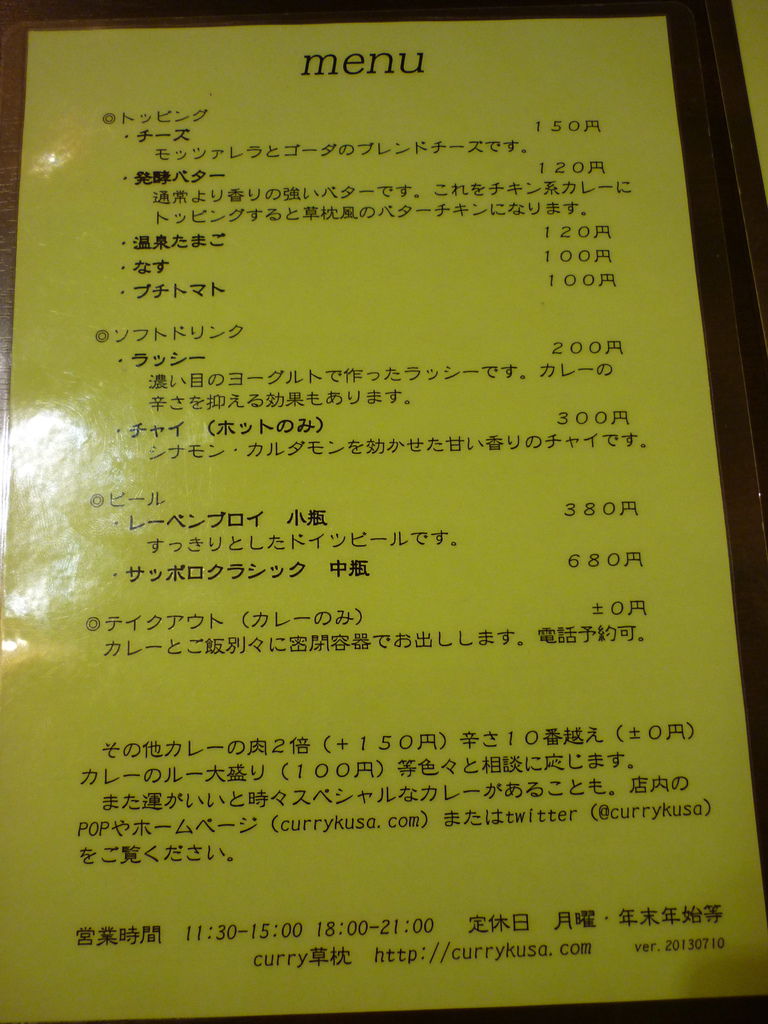 menu
◎トッピング
・チーズ 150円
モッツァレラとゴーダのブレンドチーズです。
・発酵バター 120円
通常より香りの強いバターです。これをチキン系カレーに
トッピングすると草枕風のバターチキンになります。
・温泉たまご 120円
・なす 100円
・プチトマト 100円
◎ソフトドリンク
・ラッシー 200円
濃い目のヨーグルトで作ったラッシーです。カレーの
辛さを抑える効果もあります。
・チャイ (ホットのみ) 300円
シナモン・カルダモンを効かせた甘い香りのチャイです。
◎ビール
・レーベンブロイ 小瓶 380円
すっきりとしたドイツビールです。
・サッポロクラシック 中瓶 680円
◎テイクアウト (カレーのみ) ±0円
カレーとご飯別々に密閉容器でお出しします。電話予約可。
その他カレーの肉2倍(+150円)辛さ10番越え(±0円)
カレーのルー大盛り(100円)等色々と相談に応じます。
また運がいいと時々スペシャルなカレーがあることも。店内の
POPやホームページ(currykusa.com)またはtwitter(@currykusa)
をご覧ください。
営業時間 11:30-15:00 18:00-21:00 定休日 月曜・年末年始等
curry草枕 http://currykusa.com ver. 20130710